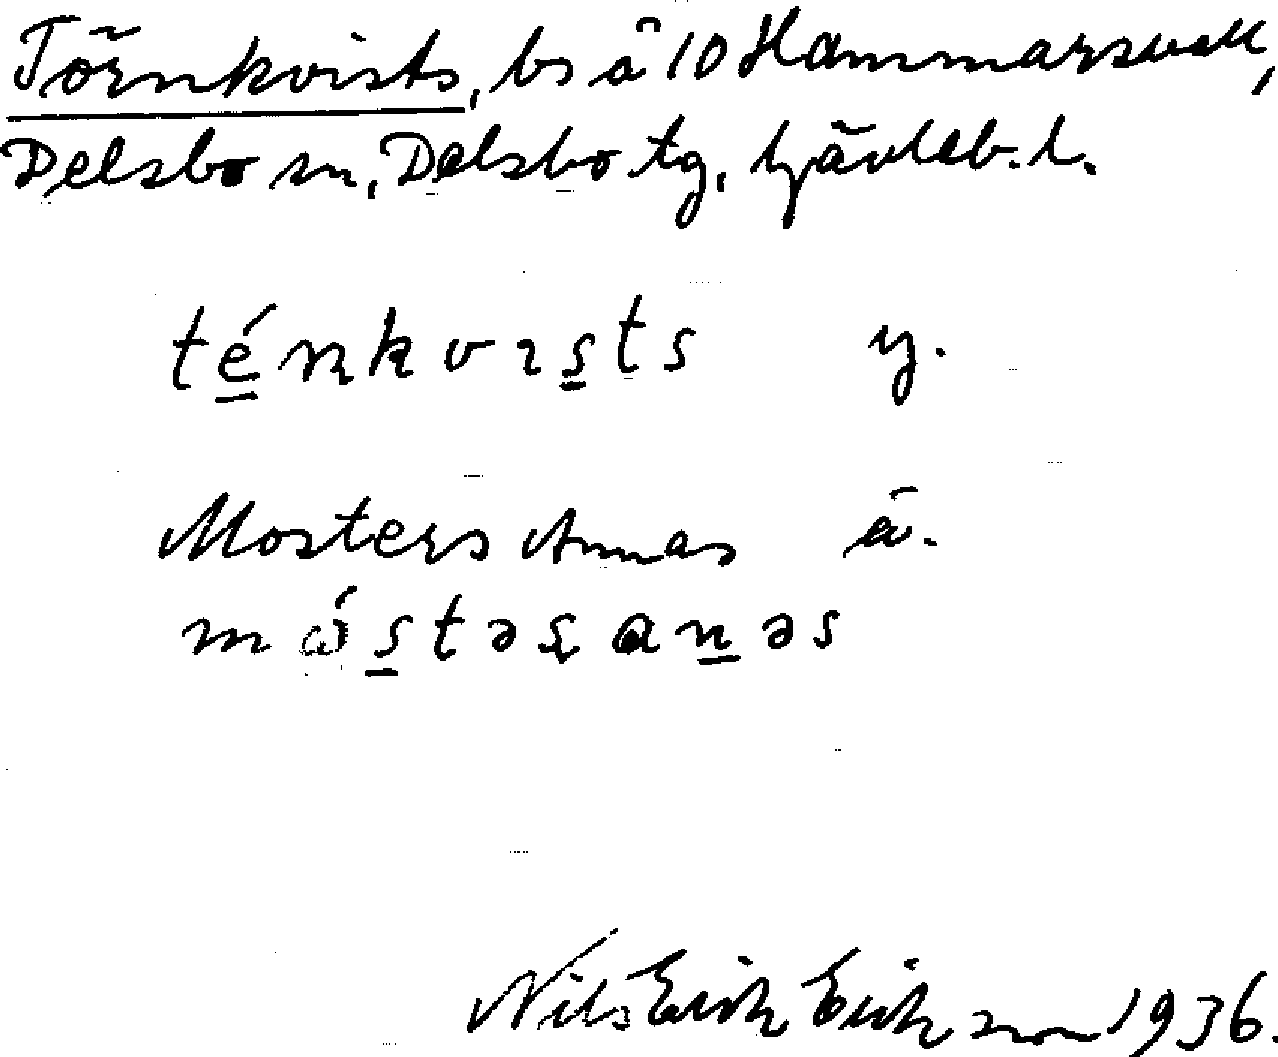 Törnkvists, bs å 10 Hammarsvall,
Delsbo sn, Delsbo tg, Gävleb. l.
ténkvısts y.
Mosters Annas ä.
mɷ́stəsanəs
Nils Erik Eriksson 1936.